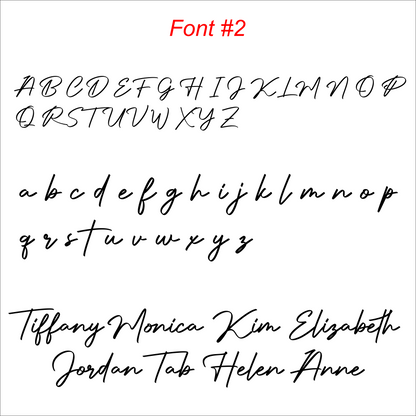 Font #2
A B C D E F G H I J K L M N O P
Q R S T U V W X Y Z
a b c d e f g h i j k l m n o p
q r s t u v w x y z
Tiffany Monica Kim Elizabeth
Jordan Tab Helen Anne